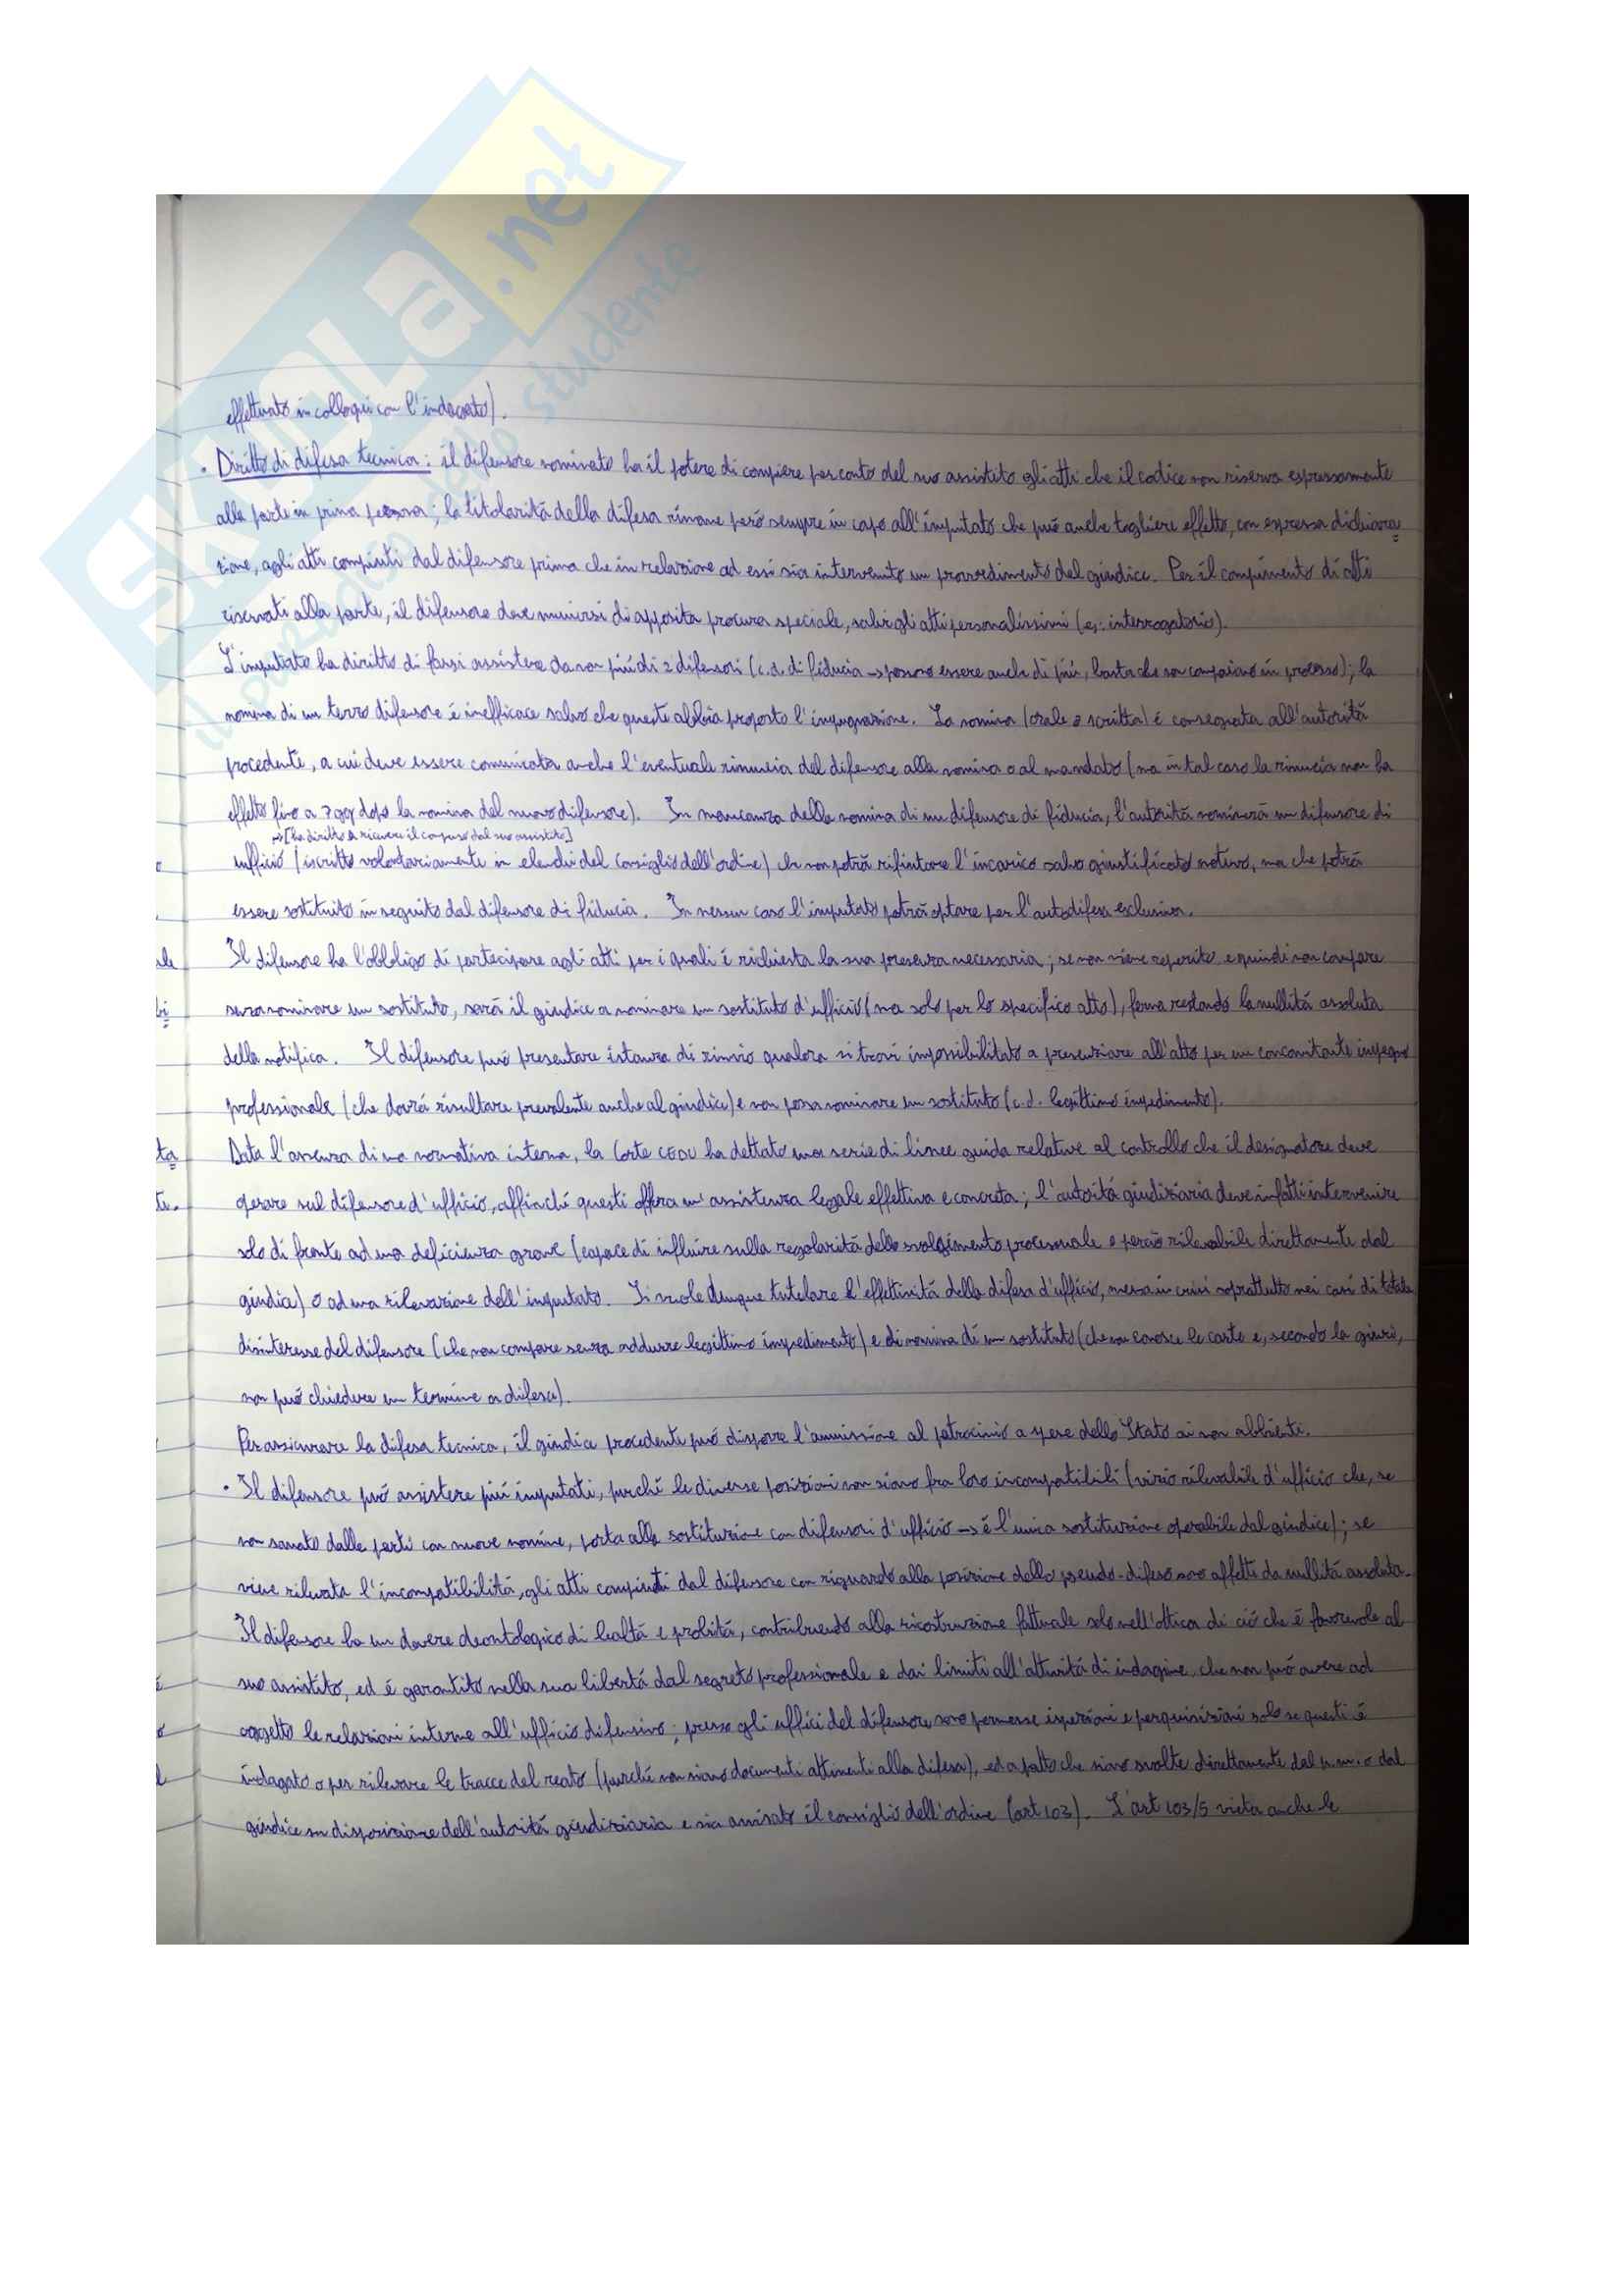 SKUOLA.net
il paradiso dello studente
effettuato in colloqui con l'indagato).
• Diritto di difesa tecnica: il difensore nominato ha il potere di compiere per conto del suo assistito gli atti che il codice non riserva espressamente
alla parte in prima persona; la titolarità della difesa rimane però sempre in capo all'imputato che può anche togliere effetto, con espressa dichiara=
zione, agli atti compiuti dal difensore prima che in relazione ad essi sia intervenuto un provvedimento del giudice. Per il compimento di atti
riservati alla parte, il difensore deve munirsi di apposita procura speciale, salvi gli atti personalissimi (es: interrogatorio).
L'imputato ha diritto di farsi assistere da non più di 2 difensori (c.d. di fiducia → possono essere anche di più, basta che non compaiano in processo); la
nomina di un terzo difensore è inefficace salvo che questo abbia proposto l'impugnazione. La nomina (orale o scritta) è consegnata all'autorità
procedente, a cui deve essere comunicata anche l'eventuale rinuncia del difensore alla nomina o al mandato (ma in tal caso la rinuncia non ha
effetto fino a 7 gg dopo la nomina del nuovo difensore). In mancanza della nomina di un difensore di fiducia, l'autorità nominerà un difensore di
→ [ha diritto a ricevere il compenso dal suo assistito]
ufficio (iscritto volontariamente in elenchi del consiglio dell'ordine) che non potrà rifiutare l'incarico salvo giustificato motivo, ma che potrà
essere sostituito in seguito dal difensore di fiducia. In nessun caso l'imputato potrà optare per l'autodifesa esclusiva.
Il difensore ha l'obbligo di partecipare agli atti per i quali è richiesta la sua presenza necessaria; se non viene reperito e quindi non compare
senza nominare un sostituto, sarà il giudice a nominare un sostituto d'ufficio (ma solo per lo specifico atto), ferma restando la nullità assoluta
della notifica. Il difensore può presentare istanza di rinvio qualora si trovi impossibilitato a presenziare all'atto per un concomitante impegno
professionale (che dovrà risultare prevalente anche al giudice) e non possa nominare un sostituto (c.d. legittimo impedimento).
Data l'assenza di una normativa interna, la Corte CEDU ha dettato una serie di linee guida relative al controllo che il designatore deve
operare sul difensore d'ufficio, affinché questi offra un'assistenza legale effettiva e concreta; l'autorità giudiziaria deve infatti intervenire
solo di fronte ad una deficienza grave (capace di influire sulla regolarità dello svolgimento processuale e perciò rilevabile direttamente dal
giudice) o ad una rilevazione dell'imputato. Si vuole dunque tutelare l'effettività della difesa d'ufficio, messa in crisi soprattutto nei casi di totale
disinteresse del difensore (che non compare senza addurre legittimo impedimento) e di nomina di un sostituto (che non conosce le carte e, secondo la giuri,
non può chiedere un termine a difesa).
Per assicurare la difesa tecnica, il giudice procedente può disporre l'ammissione al patrocinio a spese dello Stato ai non abbienti.
• Il difensore può assistere più imputati, purché le diverse posizioni non siano fra loro incompatibili (vizio rilevabile d'ufficio che, se
non sanato dalle parti con nuove nomine, porta alla sostituzione con difensori d'ufficio → è l'unica sostituzione operabile dal giudice); se
viene rilevata l'incompatibilità, gli atti compiuti dal difensore con riguardo alla posizione dello pseudo-difeso sono affetti da nullità assoluta.
Il difensore ha un dovere deontologico di lealtà e probità, contribuendo alla ricostruzione fattuale solo nell'ottica di ciò che è favorevole al
suo assistito, ed è garantito nella sua libertà dal segreto professionale e dai limiti all'attività di indagine, che non può avere ad
oggetto le relazioni interne all'ufficio difensivo; presso gli uffici del difensore sono permesse ispezioni e perquisizioni solo se questi è
indagato o per rilevare le tracce del reato (purché non siano documenti attinenti alla difesa), ed a patto che siano svolte direttamente dal p.m. o dal
giudice su disposizione dell'autorità giudiziaria e sia avvisato il consiglio dell'ordine (art 103). L'art 103/5 vieta anche le